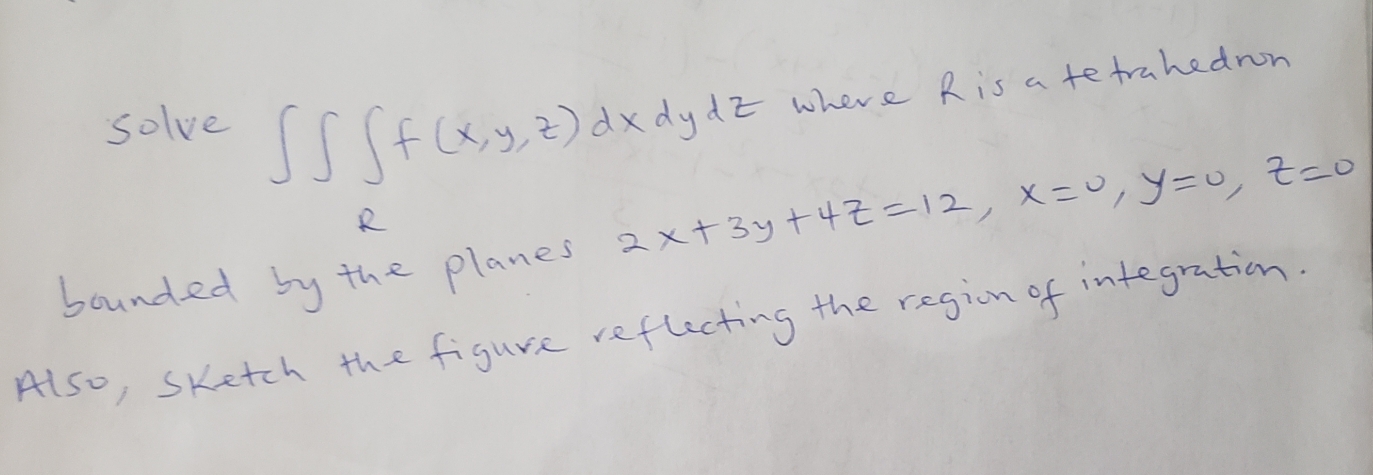 Solve ∫∫∫ f(x,y,z) dx dy dz where R is a tetrahedron
R
bounded by the planes 2x+3y+4z=12, x=0, y=0, z=0
Also, sketch the figure reflecting the region of integration.